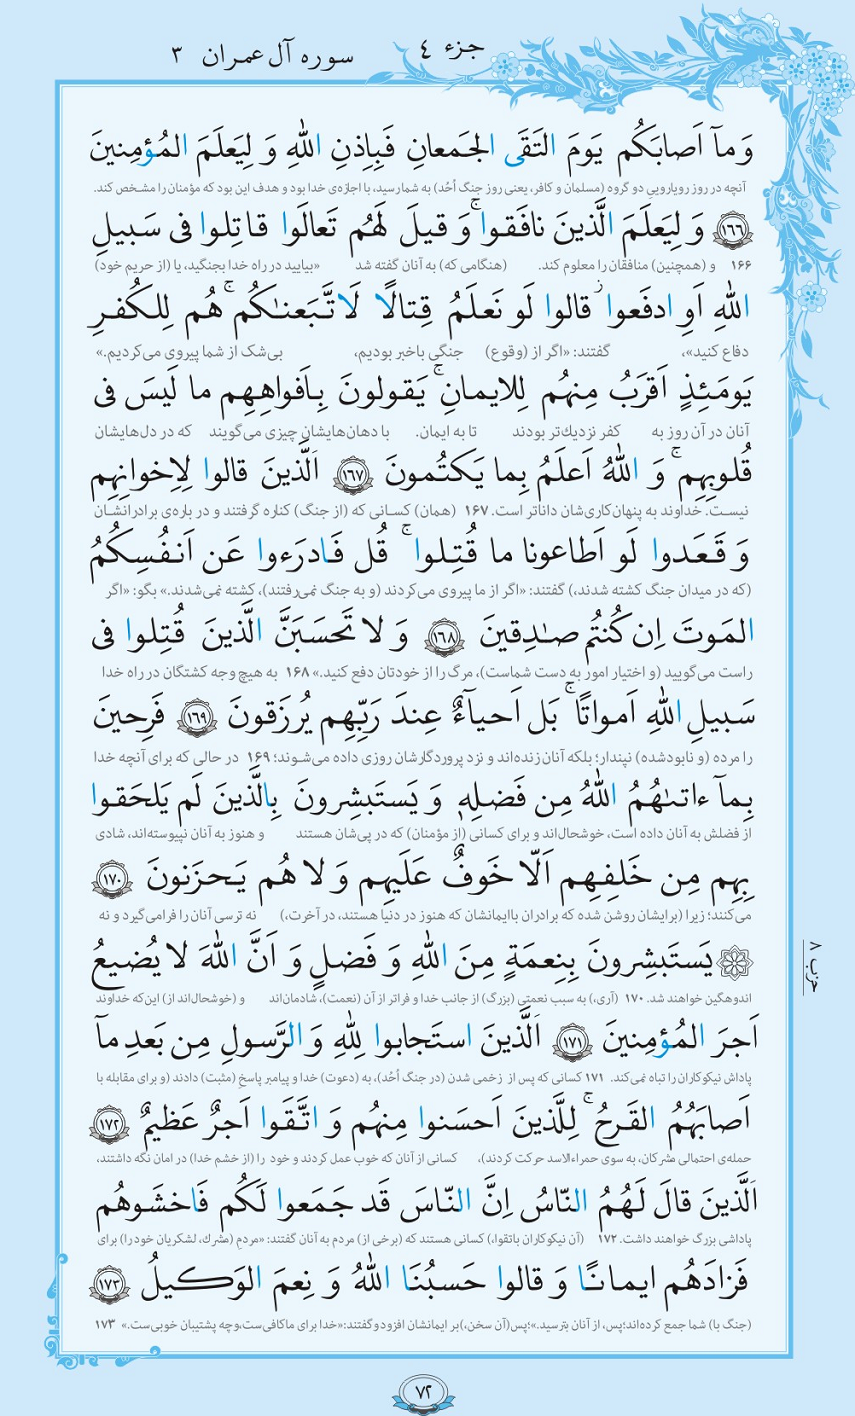 جزء ٤
سوره آل عمران ٣
وَ مآ اَصابَكُم يَومَ التَقَى الجَمعانِ فَبِاِذنِ اللهِ وَ لِيَعلَمَ المُؤمِنينَ
آنچه در روز رویاروییِ دو گروه (مسلمان و کافر، یعنی روز جنگ اُحُد) به شما رسید، با اجازه‌ی خدا بود و هدف این بود که مؤمنان را مشخص کند.
﴿١٦٦﴾ وَ لِيَعلَمَ الَّذينَ نافَقوا ۚ وَ قيلَ لَهُم تَعالَوا قاتِلوا فى سَبيلِ
۱۶۶ و (همچنین) منافقان را معلوم کند. (هنگامی که) به آنان گفته شد «بیایید در راه خدا بجنگید، یا (از حریم خود)
اللهِ اَوِ ادفَعوا ۖ قالوا لَو نَعلَمُ قِتالًا لَاتَّبَعنٰكُم ۗ هُم لِلكُفرِ
دفاع کنید»، گفتند: «اگر از (وقوع) جنگی باخبر بودیم، بی‌شک از شما پیروی می‌کردیم.»
يَومَئِذٍ اَقرَبُ مِنهُم لِلايمانِ ۚ يَقولونَ بِاَفواهِهِم ما لَيسَ فى
آنان در آن روز به کفر نزدیك‌تر بودند تا به ایمان. با دهان‌هایشان چیزی می‌گویند که در دل‌هایشان
قُلوبِهِم ۗ وَ اللهُ اَعلَمُ بِما يَكتُمونَ ﴿١٦٧﴾ اَلَّذينَ قالوا لِاِخوانِهِم
نیست. خداوند به پنهان‌کاری‌شان داناتر است. ۱۶۷ (همان) کسانی که (از جنگ) کناره گرفتند و درباره‌ی برادرانشان
وَ قَعَدوا لَو اَطاعونا ما قُتِلوا ۗ قُل فَادرَءوا عَن اَنفُسِكُمُ
(که در میدان جنگ کشته شدند،) گفتند: «اگر از ما پیروی می‌کردند (و به جنگ نمی‌رفتند)، کشته نمی‌شدند.» بگو: «اگر
المَوتَ اِن كُنتُم صٰدِقينَ ﴿١٦٨﴾ وَ لا تَحسَبَنَّ الَّذينَ قُتِلوا فى
راست می‌گویید (و اختیار امور به دست شماست)، مرگ را از خودتان دفع کنید.» ۱۶۸ به هیچ وجه کشتگان در راه خدا
سَبيلِ اللهِ اَمواتًا ۚ بَل اَحيآءٌ عِندَ رَبِّهِم يُرزَقونَ ﴿١٦٩﴾ فَرِحينَ
را مرده (و نابودشده) نپندار؛ بلکه آنان زنده‌اند و نزد پروردگارشان روزی داده می‌شوند؛ ۱۶۹ در حالی که برای آنچه خدا
بِمآ ءاتىٰهُمُ اللهُ مِن فَضلِهٖ وَ يَستَبشِرونَ بِالَّذينَ لَم يَلحَقوا
از فضلش به آنان داده است، خوشحال‌اند و برای کسانی (از مؤمنان) که در پی‌شان هستند و هنوز به آنان نپیوسته‌اند، شادی
بِهِم مِن خَلفِهِم اَلّا خَوفٌ عَلَيهِم وَ لا هُم يَحزَنونَ ﴿١٧٠﴾
می‌کنند؛ زیرا (برایشان روشن شده که برادران باایمانشان که هنوز در دنیا هستند، در آخرت،) نه ترسی آنان را فرامی‌گیرد و نه
حزب ٨
يَستَبشِرونَ بِنِعمَةٍ مِنَ اللهِ وَ فَضلٍ وَ اَنَّ اللهَ لا يُضيعُ
اندوهگین خواهند شد. ۱۷۰ (آری،) به سبب نعمتی (بزرگ) از جانب خدا و فراتر از آن (نعمت)، شادمان‌اند و (خوشحال‌اند از) این‌که خداوند
اَجرَ المُؤمِنينَ ﴿١٧١﴾ اَلَّذينَ استَجابوا لِلّٰهِ وَ الرَّسولِ مِن بَعدِ مآ
پاداش نیکوکاران را تباه نمی‌کند. ۱۷۱ کسانی که پس از زخمی شدن (در جنگ اُحُد)، به (دعوت) خدا و پیامبر پاسخِ (مثبت) دادند (و برای مقابله با
اَصابَهُمُ القَرحُ ۚ لِلَّذينَ اَحسَنوا مِنهُم وَ اتَّقَوا اَجرٌ عَظيمٌ ﴿١٧٢﴾
حمله‌ی احتمالی مشرکان، به سوی حمراءالاسد حرکت کردند)، کسانی از آنان که خوب عمل کردند و خود را (از خشم خدا) در امان نگه داشتند،
اَلَّذينَ قالَ لَهُمُ النّاسُ اِنَّ النّاسَ قَد جَمَعوا لَكُم فَاخشَوهُم
پاداشی بزرگ خواهند داشت. ۱۷۲ (آن نیکوکاران باتقوا،) کسانی هستند که (برخی از) مردم به آنان گفتند: «مردمِ (مشرك، لشکریان خود را) برای
فَزادَهُم ايمانًا وَ قالوا حَسبُنَا اللهُ وَ نِعمَ الوَكيلُ ﴿١٧٣﴾
(جنگ با) شما جمع کرده‌اند؛ پس، از آنان بترسید.»؛ پس (آن سخن،) بر ایمانشان افزود و گفتند: «خدا برای ما کافی‌ست، و چه پشتیبان خوبی‌ست.» ۱۷۳
٧٢